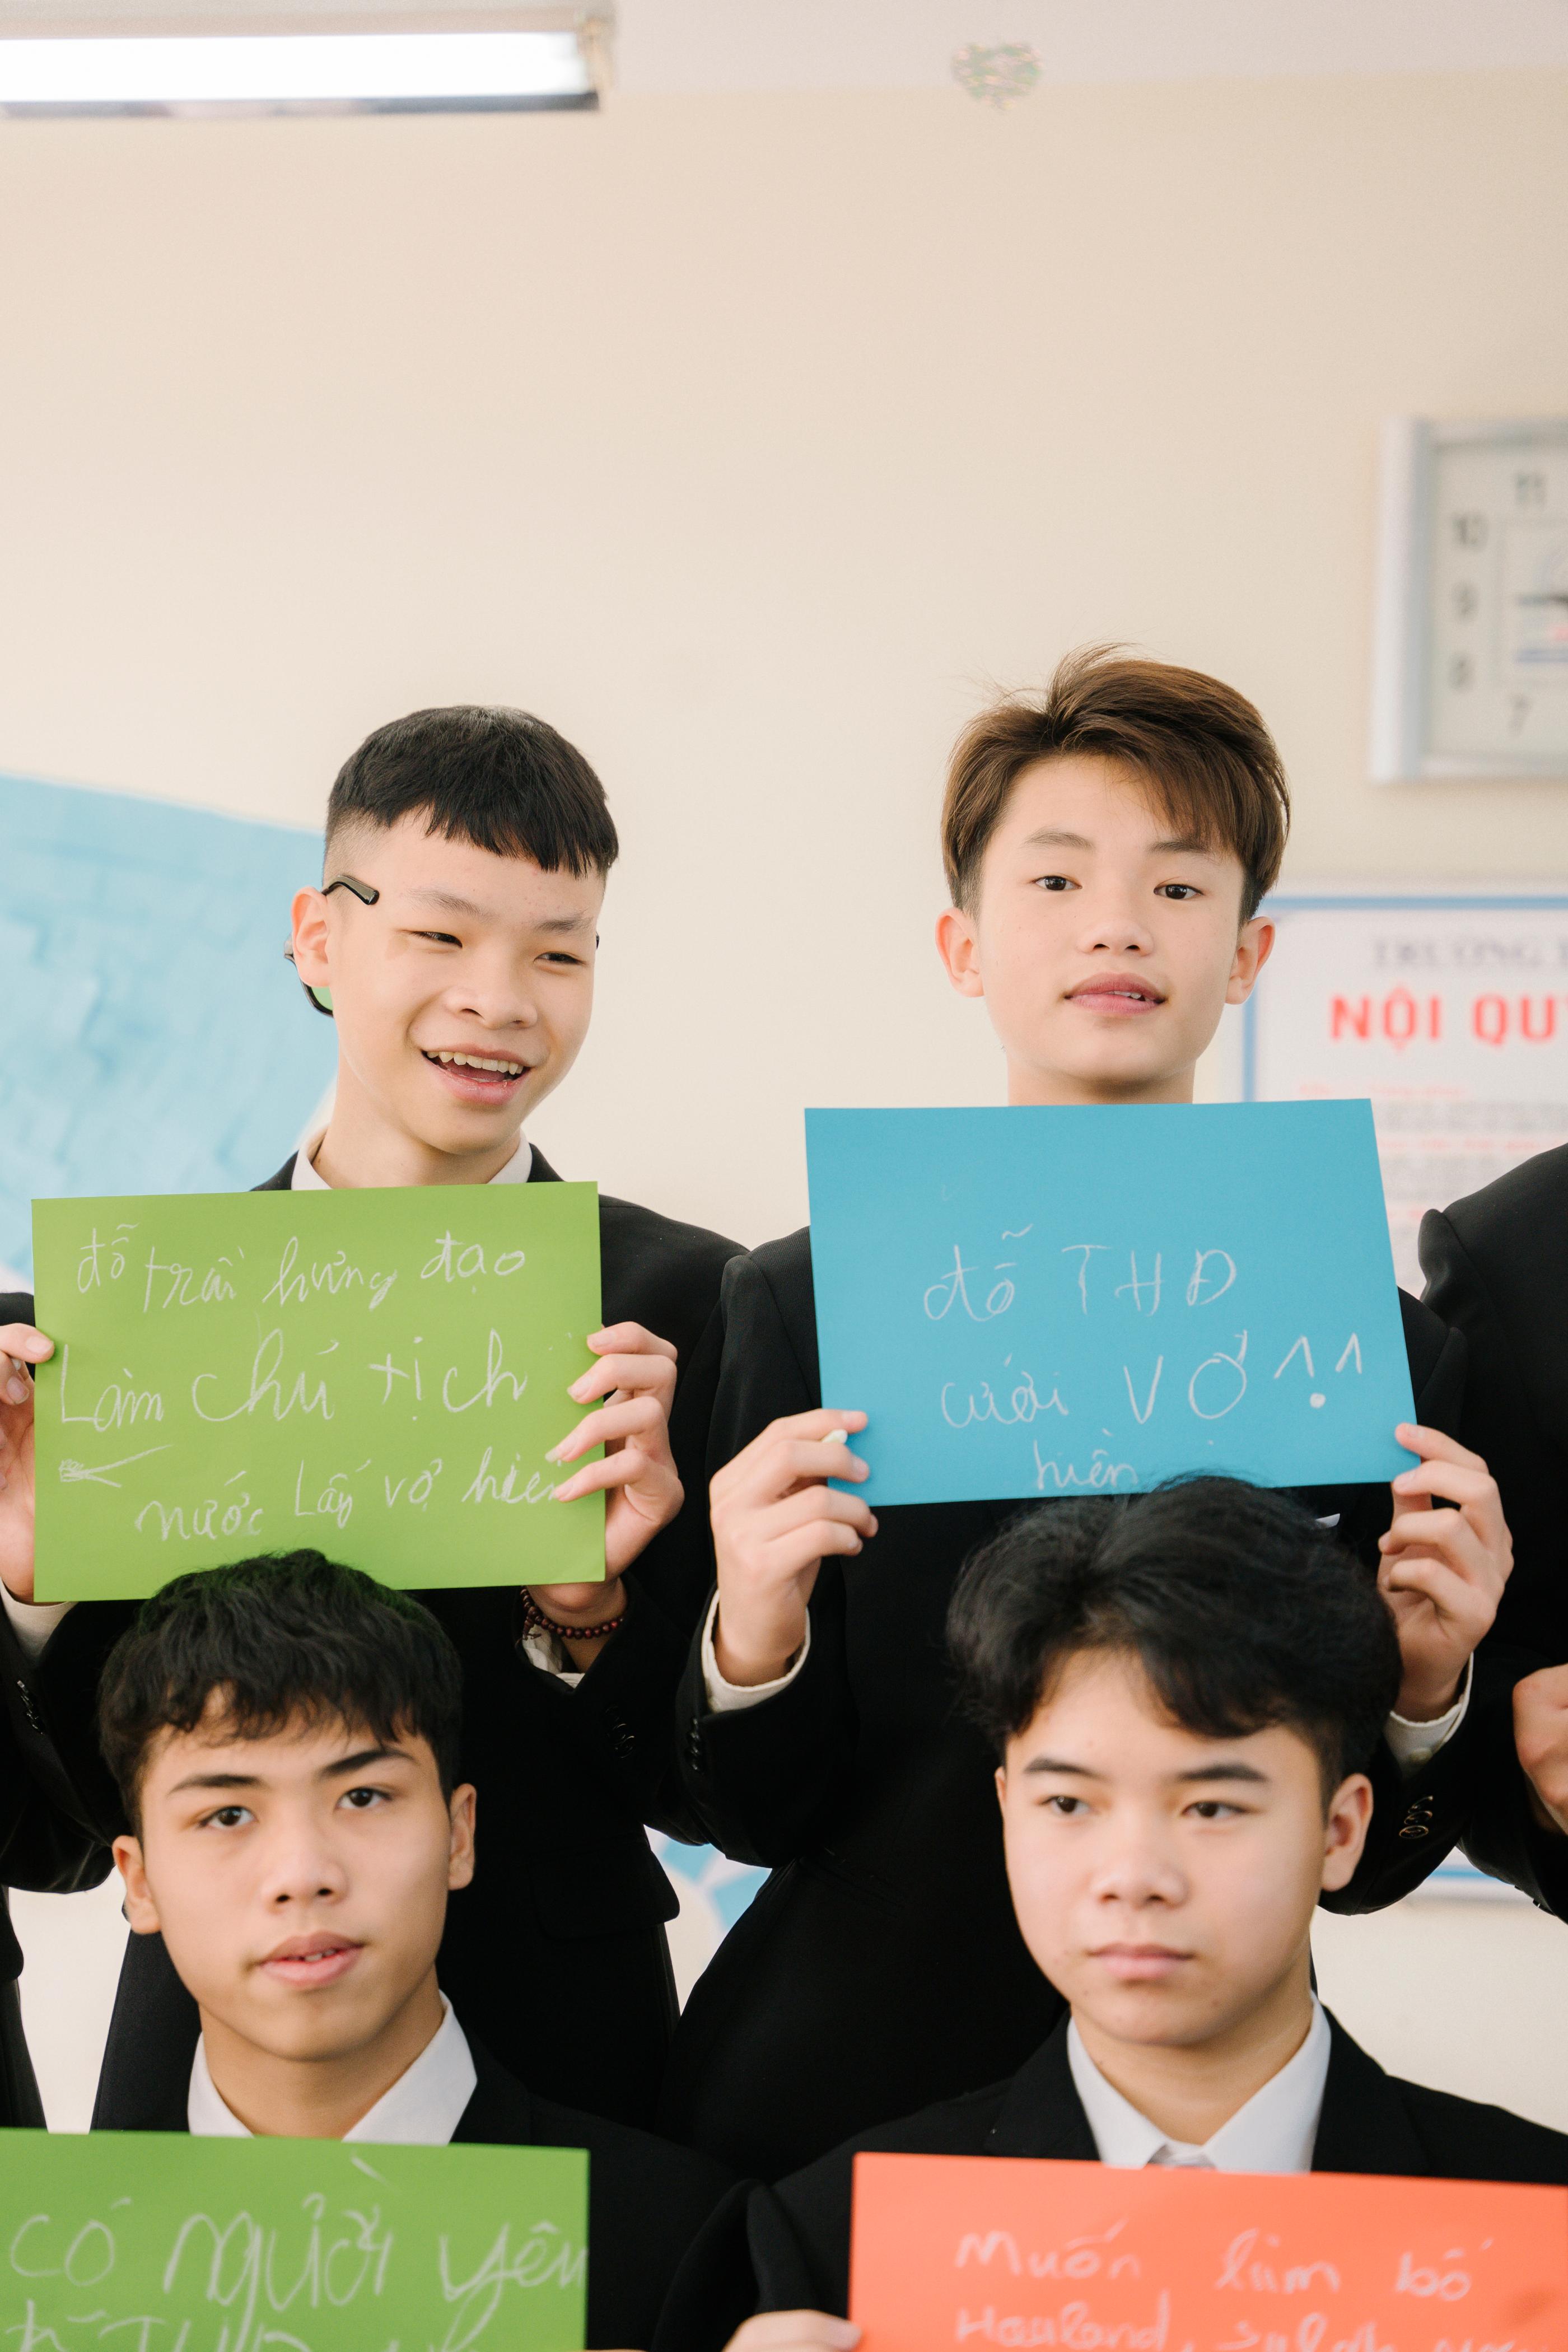 11
10
9
8
7
TRƯỜNG
NỘI QU
đỗ trần hưng đạo
Làm chủ tịch
nước Lấy vợ hiền
đỗ THĐ
cưới VỢ ^.^
hiền
có người yêu
THĐ
Muốn làm bố